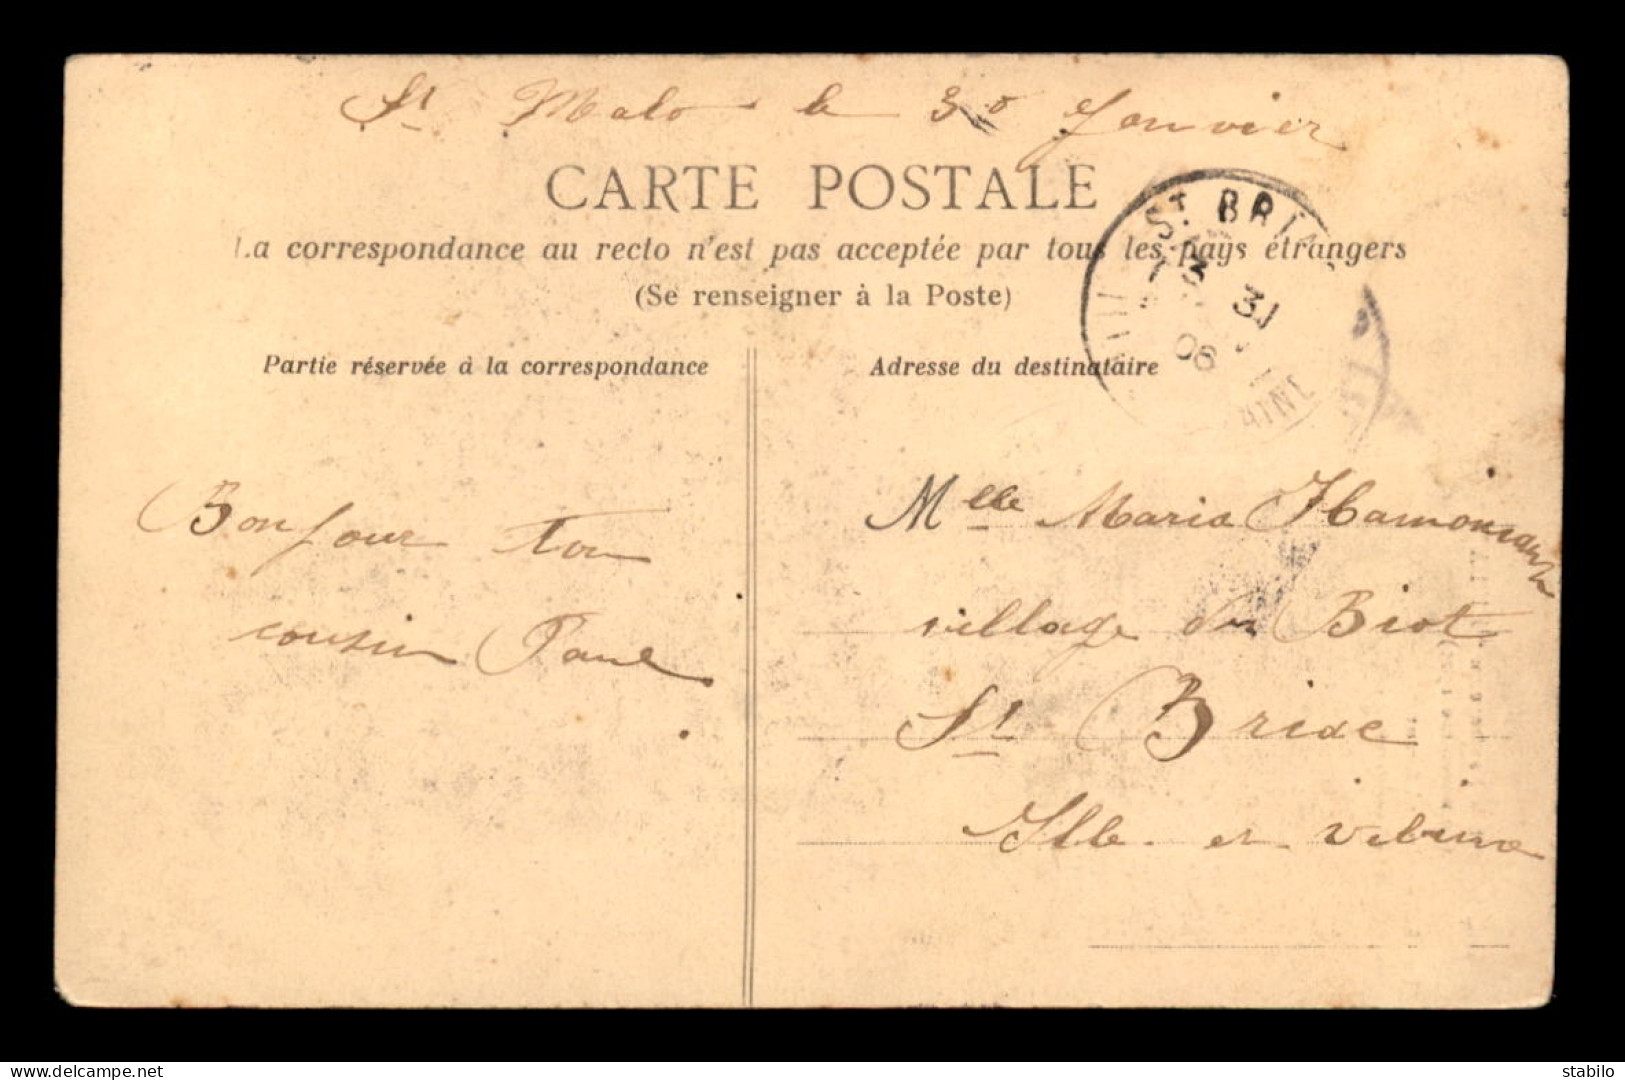 St Malo le 30 Janvier
CARTE POSTALE
La correspondance au recto n'est pas acceptée par tous les pays étrangers
(Se renseigner à la Poste)
ST. BRI
3 31
06
Partie réservée à la correspondance
Adresse du destinataire
Bonjour Ton
cousin Paul
Mlle Maria
village du Biot
St Briac
Ille et vilaine
www.delcampe.net
stabilo